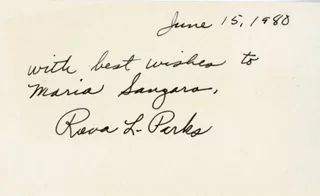 June 15, 1980
with best wishes to
Maria Sangaro,
Rosa L. Parks